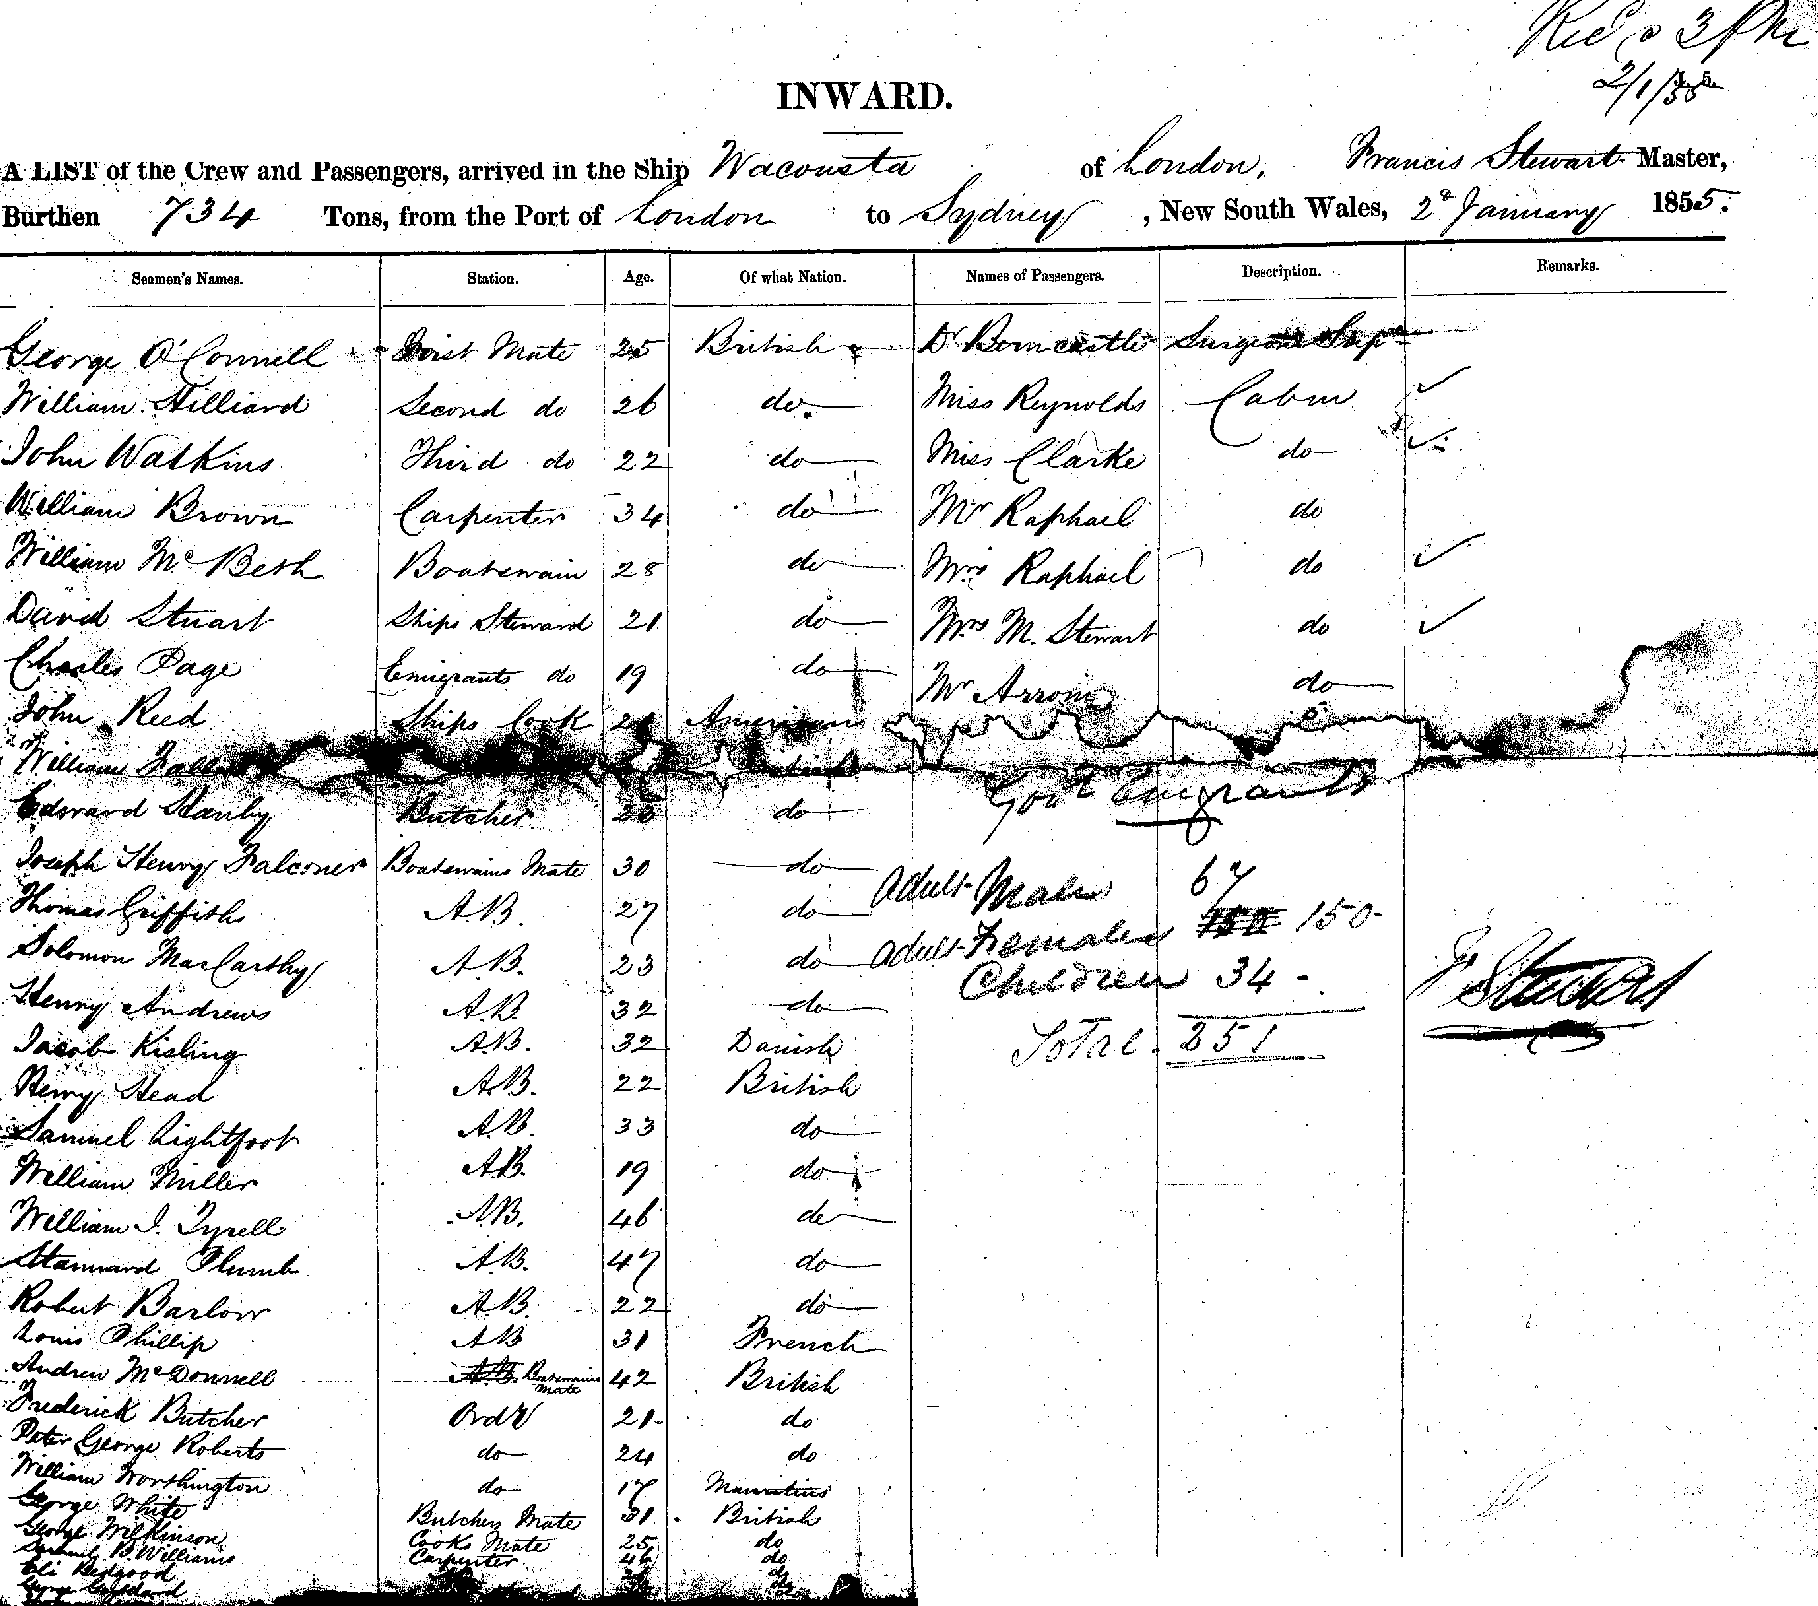 INWARD.
2/1/55
A LIST of the Crew and Passengers, arrived in the Ship Wacousta of London, Francis Stewart Master,
Burthen 734 Tons, from the Port of London to Sydney, New South Wales, 2d January 1855.
Seamen's Names. Station. Age. Of what Nation. Names of Passengers. Description. Remarks.
George O'Connell First Mate 25 British Dr Borncastle Surgeon Supt
William Hilliard Second do 26 do Miss Reynolds Cabin ✓
John Watkins Third do 22 do Miss Clarke do ✓
William Brown Carpenter 34 do Mr Raphael do
William McBeth Boatswain 28 do Mrs Raphael do ✓
David Stuart Ships Steward 21 do Mrs M. Stewart do ✓
Charles Page Emigrants do 19 do Mr Arrom do
John Reed Ships Cook American
William
Govt Emigrants
Edward Hanby Butcher do
Joseph Henry Falconer Boatswains Mate 30 do Adult Males 67
Thomas Griffiths A.B. 27 do Adult Females 150
Solomon MacCarthy A.B. 23 do Children 34
Henry Andrews A.B. 32 do F Stewart
Jacob Kisling A.B. 32 Danish Total 251
Henry Head A.B. 22 British
Samuel Lightfoot A.B. 33 do
William Miller A.B. 19 do
William J. Tyrell A.B. 46 do
Stannard Plumb A.B. 47 do
Robert Barlow A.B. 22 do
Louis Phillip A.B 31 French
Andrew McDonnell A.B. Boatswains Mate 42 British
Frederick Butcher Ordy 21 do
Peter George Roberts do 24 do
William Worthington do 17 Mauritius
George White Butchers Mate 31 British
George Wilkinson Cooks Mate 25 do
Samuel B. Williams Carpenter 46 do
Eli Bedgood do
George Goddard do